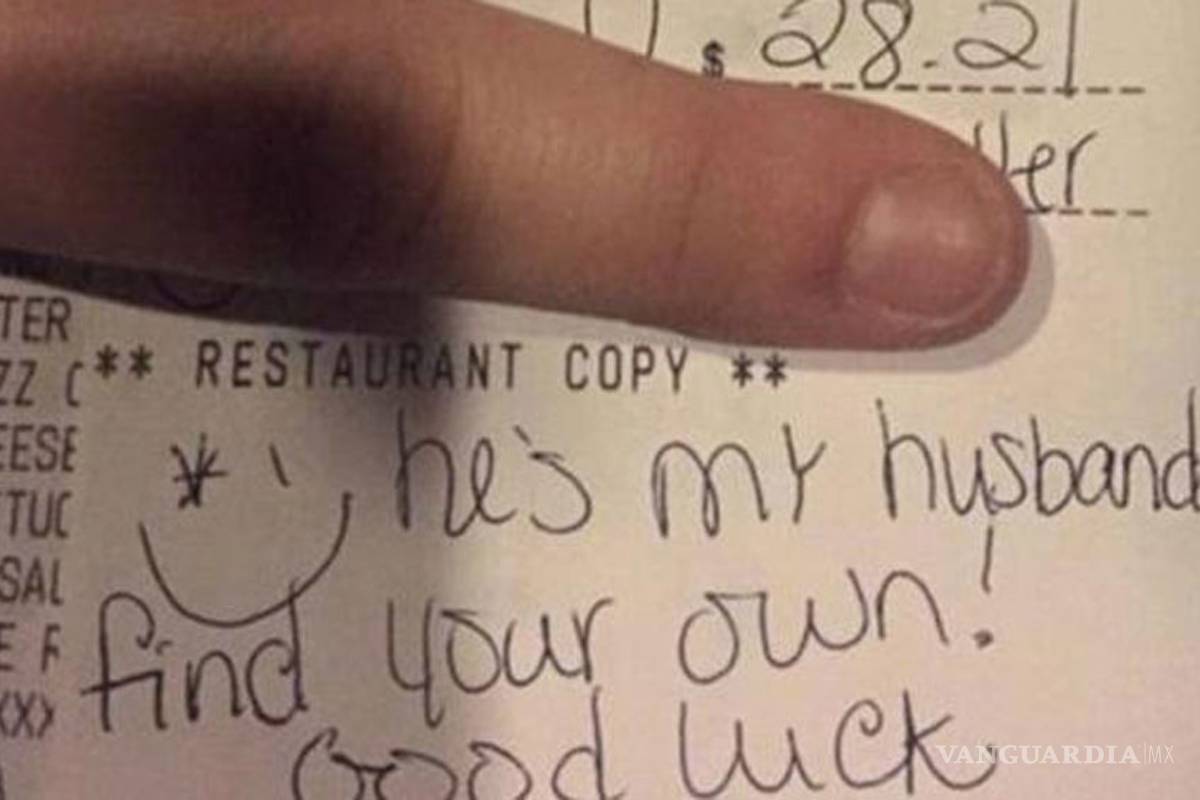 $ 28.21
TER
ZZ (
** RESTAURANT COPY **
EESE
he's my husband
TUC
SAL
find your own!
E F
XX>
Good luck
VANGUARDIA|MX